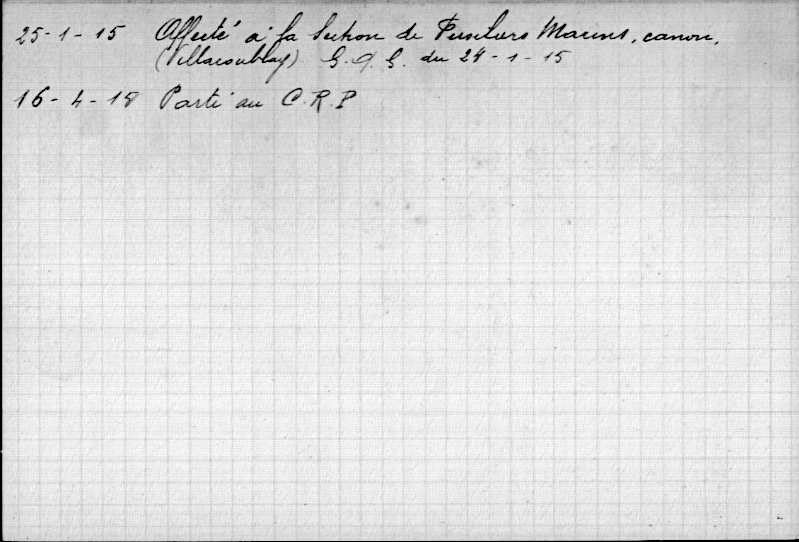 25-1-15 Affecté à la Section de Fusiliers Marins, canon,
(Villacoublay) G.Q.G. du 24-1-15
16-4-18 Parti au C.R.P